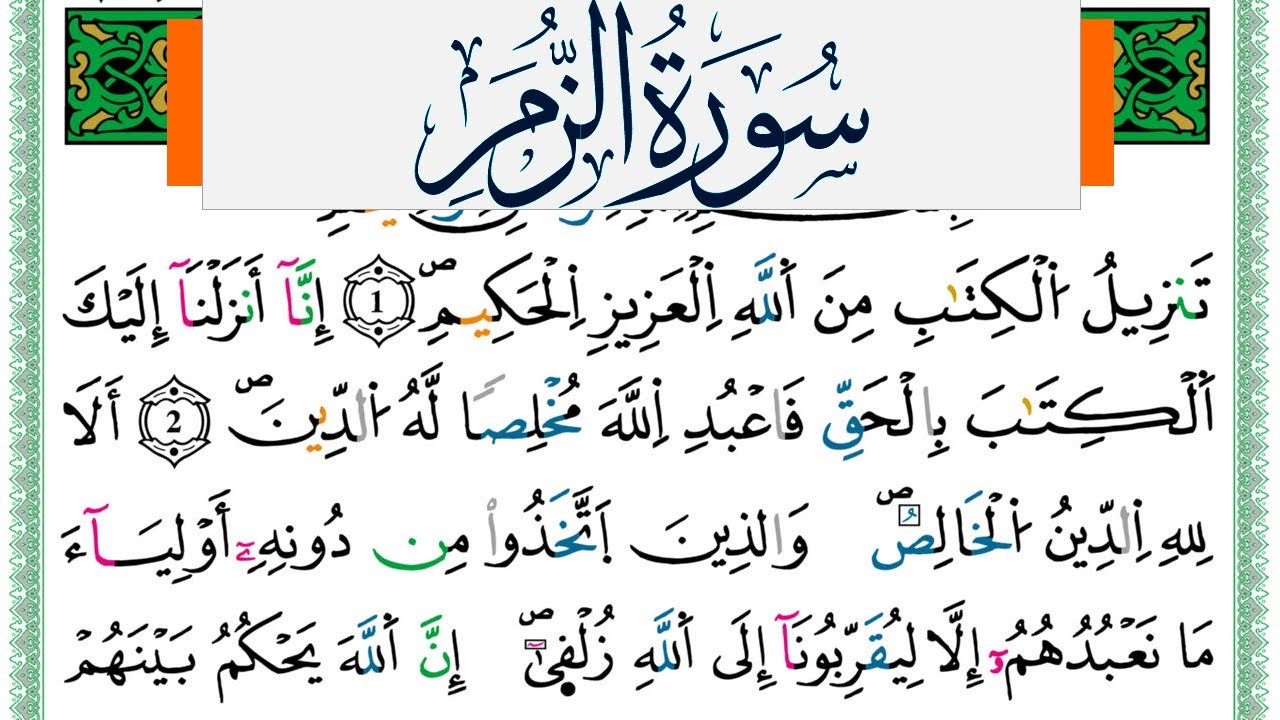 سُورَةُ الزُّمَرِ
تَنزِيلُ اُ۬لْكِتَٰبِ مِنَ اَ۬للَّهِ اِ۬لْعَزِيزِ اِ۬لْحَكِيمِۖ 1 إِنَّآ أَنزَلْنَآ إِلَيْكَ
اَ۬لْكِتَٰبَ بِالْحَقِّ فَاعْبُدِ اِ۬للَّهَ مُخْلِصًا لَّهُ اُ۬لدِّينَۖ 2 أَلَا
لِلهِ اِ۬لدِّينُ اُ۬لْخَالِصُۖ وَالذِينَ اَ۪تَّخَذُوا۟ مِن دُونِهِۦٓ أَوْلِيَآءَ
مَا نَعْبُدُهُمُۥٓ إِلَّا لِيُقَرِّبُونَآ إِلَى اَ۬للَّهِ زُلْفٜىٰٓۖ إِنَّ اَ۬للَّهَ يَحْكُمُ بَيْنَهُمْ